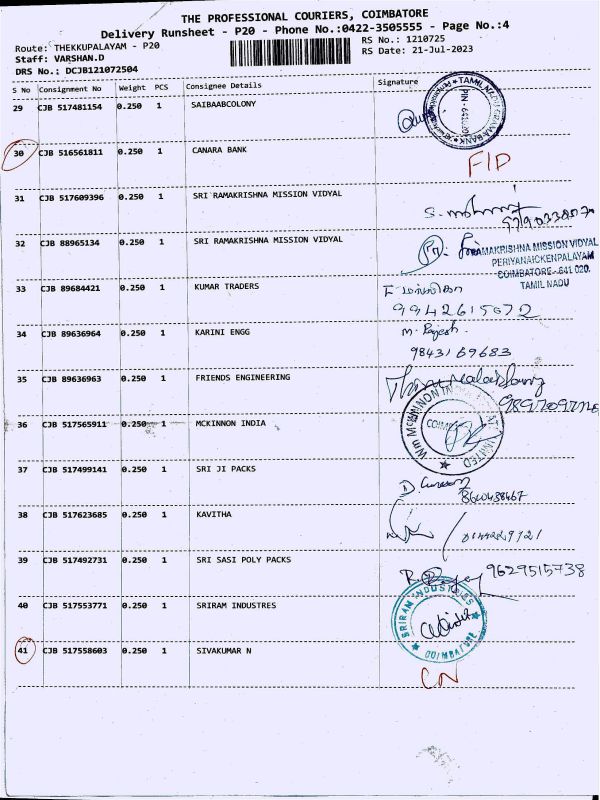 THE PROFESSIONAL COURIERS, COIMBATORE
Delivery Runsheet - P20 - Phone No.:0422-3505555 - Page No.:4
Route: THEKKUPALAYAM - P20
RS No.: 1210725
Staff: VARSHAN.D
RS Date: 21-Jul-2023
DRS No.: DCJB121072504
S No Consignment No Weight PCS Consignee Details Signature
29 CJB 517481154 0.250 1 SAIBAABCOLONY
30 CJB 516561811 0.250 1 CANARA BANK
FID
31 CJB 517609396 0.250 1 SRI RAMAKRISHNA MISSION VIDYAL
32 CJB 88965134 0.250 1 SRI RAMAKRISHNA MISSION VIDYAL
RAMAKRISHNA MISSION VIDYAL
PERIYANAICKENPALAYAM
COIMBATORE - 641 020.
TAMIL NADU
33 CJB 89684421 0.250 1 KUMAR TRADERS
9942615072
34 CJB 89636964 0.250 1 KARINI ENGG
M. Rajesh.
9843169683
35 CJB 89636963 0.250 1 FRIENDS ENGINEERING
36 CJB 517565911 0.250 1 MCKINNON INDIA
37 CJB 517499141 0.250 1 SRI JI PACKS
38 CJB 517623685 0.250 1 KAVITHA
39 CJB 517492731 0.250 1 SRI SASI POLY PACKS
9629515738
40 CJB 517553771 0.250 1 SRIRAM INDUSTRES
SRIRAM INDUSTRIES
COIMBATORE
41 CJB 517558603 0.250 1 SIVAKUMAR N
CN